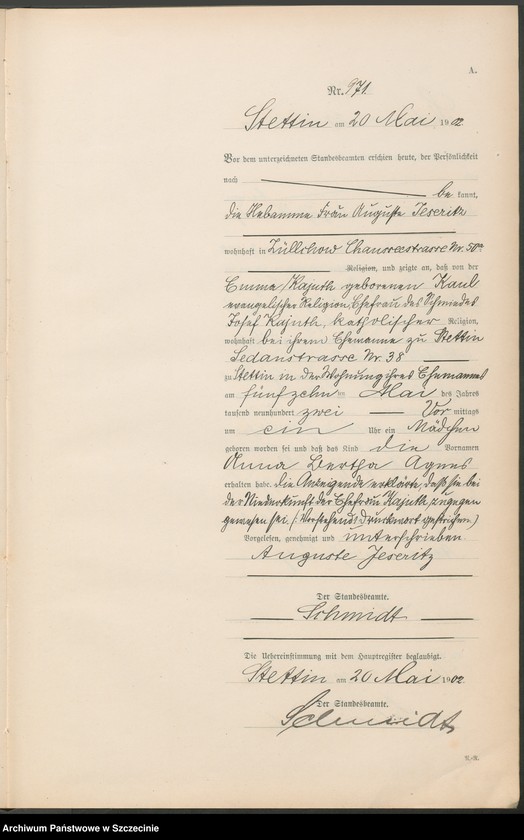 A.
Nr. 971.
Stettin am 20 Mai 1902.
Vor dem unterzeichneten Standesbeamten erschien heute, der Persönlichkeit
nach be kannt,
die Hebamme Frau Auguste Jeseritz
wohnhaft in Züllchow Chausseestrasse Nr. 50a
Religion, und zeigte an, daß von der
Emma Kajuth geborenen Kaul
evangelischer Religion, Ehefrau des Schmiedes
Josef Kajuth, katholischer Religion,
wohnhaft bei ihrem Ehemanne zu Stettin
Sedanstrasse Nr. 38
zu Stettin in der Wohnung ihres Ehemannes
am fünfzehn ten Mai des Jahres
tausend neunhundert zwei Vor mittags
um ein Uhr ein Mädchen
geboren worden sei und daß das Kind die Vornamen
Anna Bertha Agnes
erhalten habe. Die Anzeigende erklärte, daß sie bei
der Niederkunft der Ehefrau Kajuth zugegen
gewesen sei. (Vorstehend 1 Druckwort gestrichen.)
Vorgelesen, genehmigt und unterschrieben
Auguste Jeseritz
Der Standesbeamte.
Schmidt
Die Uebereinstimmung mit dem Hauptregister beglaubigt.
Stettin am 20 Mai 1902.
Der Standesbeamte.
Schmidt
Archiwum Państwowe w Szczecinie